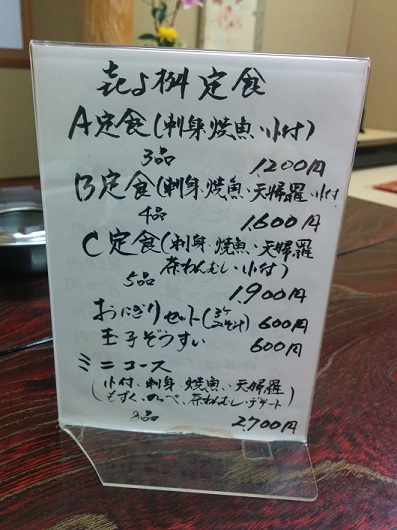 㐂よ桝定食
A定食(刺身、焼魚、小付)
3品 1,200円
B定食(刺身、焼魚、天婦羅、小付
4品 1,600円
C定食(刺身、焼魚、天婦羅
茶わんむし、小付)
5品 1,900円
おにぎりセット(3ケ みそ汁) 600円
玉子ぞうすい 600円
ミニコース
(小付、刺身、焼魚、天婦羅
もずく、のっぺ、茶わんむし、デザート)
8品 2,700円